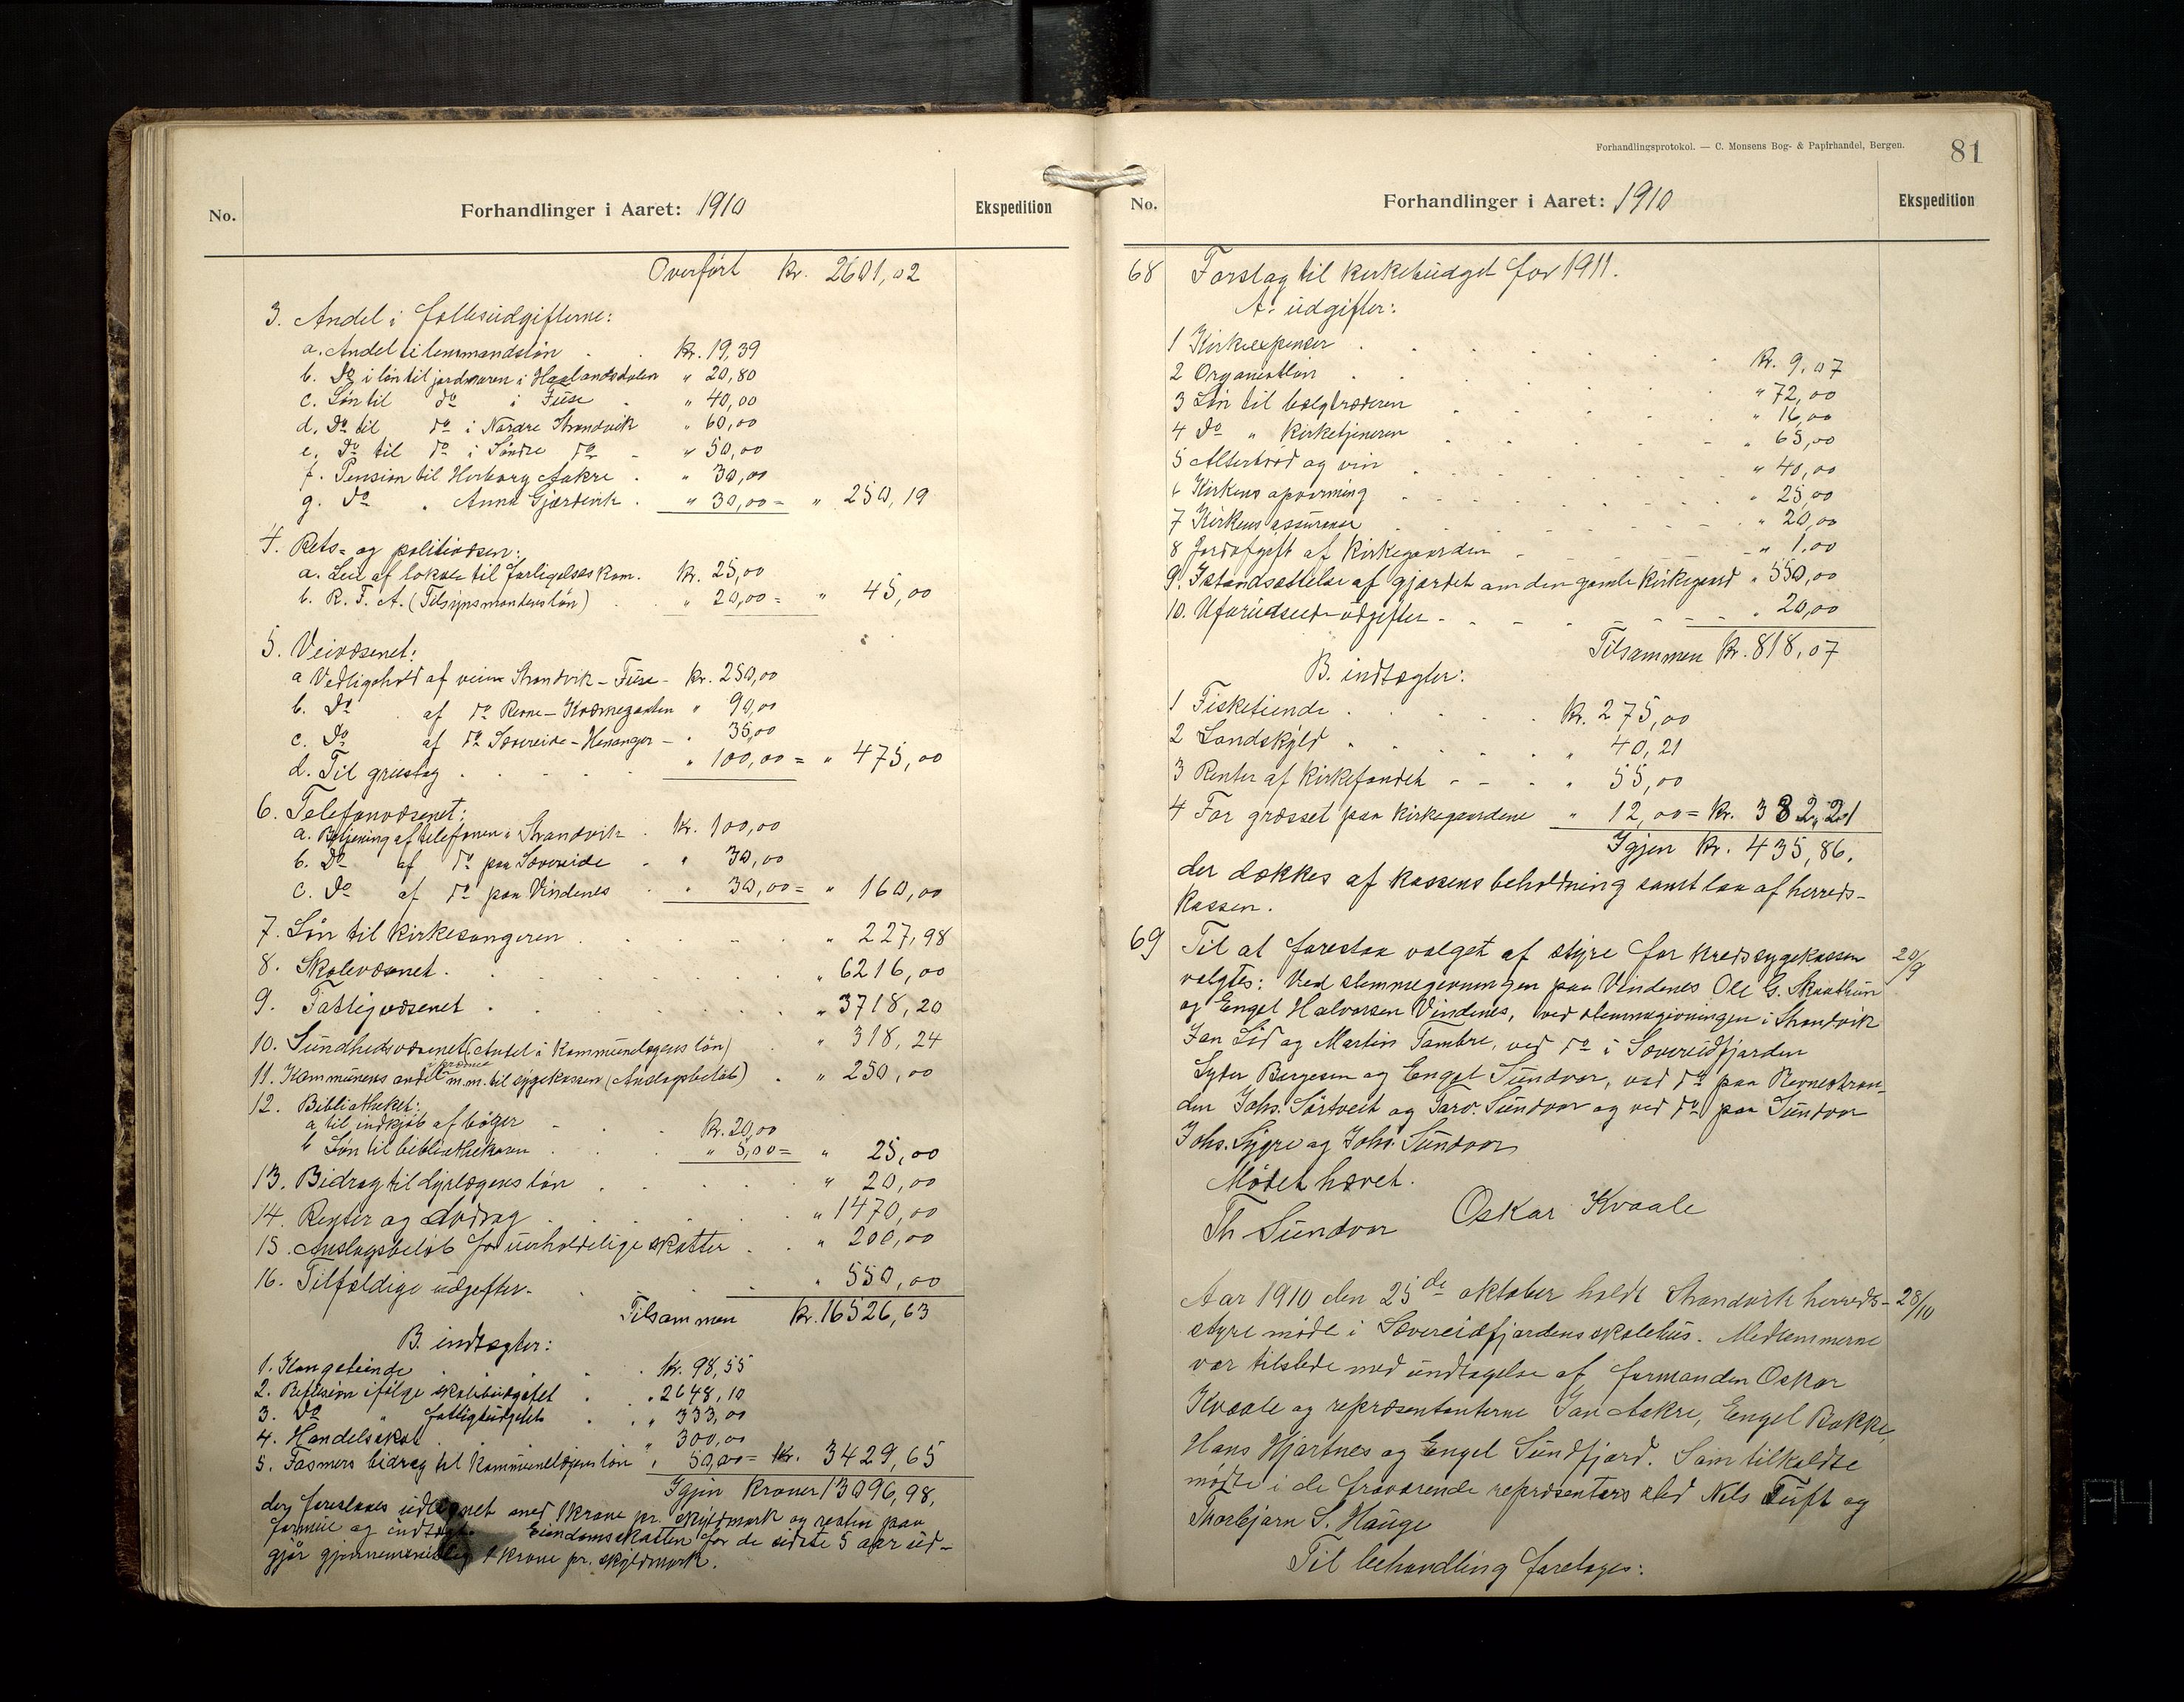 No.
Forhandlinger i Aaret: 1910
Ekspedition
Overført Kr. 2601,02
3. Andel i fællesudgifterne:
a. Andel til lensmandsløn . . Kr. 19,39
b. Do i løn til jordmoren i Haalandsdalen " 20,80
c. Løn til do i Fuse . " 40,00
d. Do til do i Nordre Strandvik " 60,00
e. Do til do i Søndre do - " 50,00
f. Pension til Herborg Aakre . " 30,00
g. Do " Anna Gjerdevik . " 30,00 = " 250,19
4. Rets= og politivæsen:
a. Leie af lokale til forligelseskom. Kr. 25,00
b. R. T. A. (Tilsynsmandens løn) . " 20,00 = " 45,00
5. Veivæsenet:
a Vedligehold af veien Strandvik - Fuse - Kr. 250,00
b. Do . af do Revne - Kvernegaten " 90,00
c. Do af do Sævereide - Henanger - " 35,00
d. Til grustag . . . . " 100,00 = " 475,00
6. Telefonvæsenet:
a. Betjening af telefonen i Strandvik . Kr. 100,00
b. Do af do paa Sævereide - " 30,00
c. Do af do paa Vindenes . " 30,00 = " 160,00
7. Løn til kirkesangeren . . . . " 227,98
8. Skolevæsenet . . . . . . " 6216,00
9. Fattigvæsenet . . . . . . " 3718,20
10. Sundhedsvæsenet (Andel i kommunelægens løn) . " 318,24
11. Kommunens andel i præmie m.m. til sygekassen (Anslagsbeløb) . " 250,00
12. Bibliotheket:
a til indkjøb af bøger - . . Kr. 20,00
b Løn til bibliothekaren . . . " 5,00 = " 25,00
13. Bidrag til dyrlægens løn . . . . " 20,00
14. Renter og Avdrag . . . . " 1470,00
15. Anslagsbeløb for uerholdelige skatter . . " 200,00
16. Tilfældige udgifter. . . . " 550,00
Tilsammen Kr. 16526,63
B. indtægter:
1. Kongetiende . . . Kr. 98,55
2. Refusion ifølge skolebudgettet . " 2648,10
3. Do " fattigbudgettet . . " 333,00
4. Handelsskat . . . " 300,00
5. Fasmers bidrag til kommunelægens løn " 50,00 = Kr. 3429,65
Igjen Kroner 13096,98,
der foreslaaes udlignet med 1 krone pr. skyldmark og resten paa
formue og indtægt. Eiendomsskatten for de sidste 5 aar ud-
gjør gjennemsnitlig 1 krone pr. skyldmark.
Forhandlingsprotokol. — C. Monsens Bog- & Papirhandel, Bergen.
81
No.
Forhandlinger i Aaret: 1910
Ekspedition
68 Forslag til kirkebudget for 1911.
A. udgifter:
1 Kirkeexpenser . . . . . . Kr. 9,07
2 Organistløn . . . . . . " 72,00
3 Løn til bælgtræderen . . . . " 16,00
4 Do " kirketjeneren . . . . " 65,00
5 Alterbrød og vin . . . . . " 40,00
6 Kirkens opvarming . . . . . " 25,00
7 Kirkens assuranse . . . . . " 20,00
8 Jordafgift af kirkegaarden - - - - " 1,00
9. Istandsættelse af gjærdet om den gamle kirkegaard " 550,00
10. Uforudseede udgifter - - - - - " 20,00
Tilsammen Kr. 818,07
B. indtægter:
1 Fisketiende . . . . . Kr. 275,00
2 Landskyld . . . . . " 40,21
3 Renter af kirkefondet - - - " 55,00
4 For græsset paa kirkegaardene " 12,00 = Kr. 382,21
Igjen Kr. 435,86,
der dækkes af kassens beholdning samt laan af herreds-
kassen.
69 Til at forestaa valget af styre for kredssygekassen 20/9
valgtes: Ved stemmegivningen paa Vindenes Ole G. Skaathun
og Engel Halvorsen Vindenes, ved stemmegivningen i Strandvik
Jan Lid og Martin Tombre, ved do i Sævereidfjorden
Syder Bergesen og Engel Sundvor, ved do paa Revnestran-
den Johs. Sørtveit og Tarv. Sundvor og ved do paa Sundvor
Johs. Lygre og Johs. Sundvor
Mødet hævet.
Th Sundvor Oskar Kvaale
Aar 1910 den 25de oktober holdt Strandvik herreds- 28/10
styre møde i Sævereidfjordens skolehus. Medlemmerne
var tilstede med undtagelse af formanden Oskar
Kvaale og repræsentanterne Jan Aakre, Engel Bakke,
Hans Hjartnes og Engel Sundfjord. Som tilkaldte
mødte i de fraværende repræsenters sted Nils Tuft og
Thorbjørn S. Hauge
Til behandling foretoges: